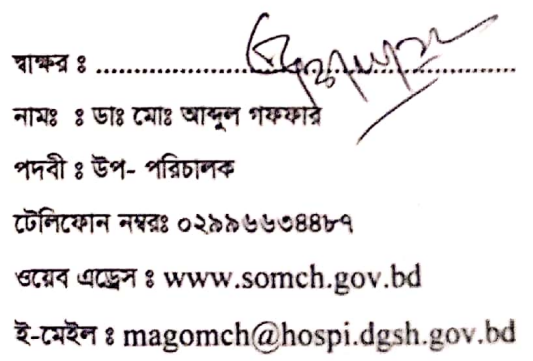 স্বাক্ষর ঃ ..............................................................
নামঃ ঃ ডাঃ মোঃ আব্দুল গফফার
পদবী ঃ উপ- পরিচালক
টেলিফোন নম্বরঃ ০২৯৯৬৬৩৪৪৮৭
ওয়েব এড্রেস ঃ www.somch.gov.bd
ই-মেইল ঃ magomch@hospi.dgsh.gov.bd